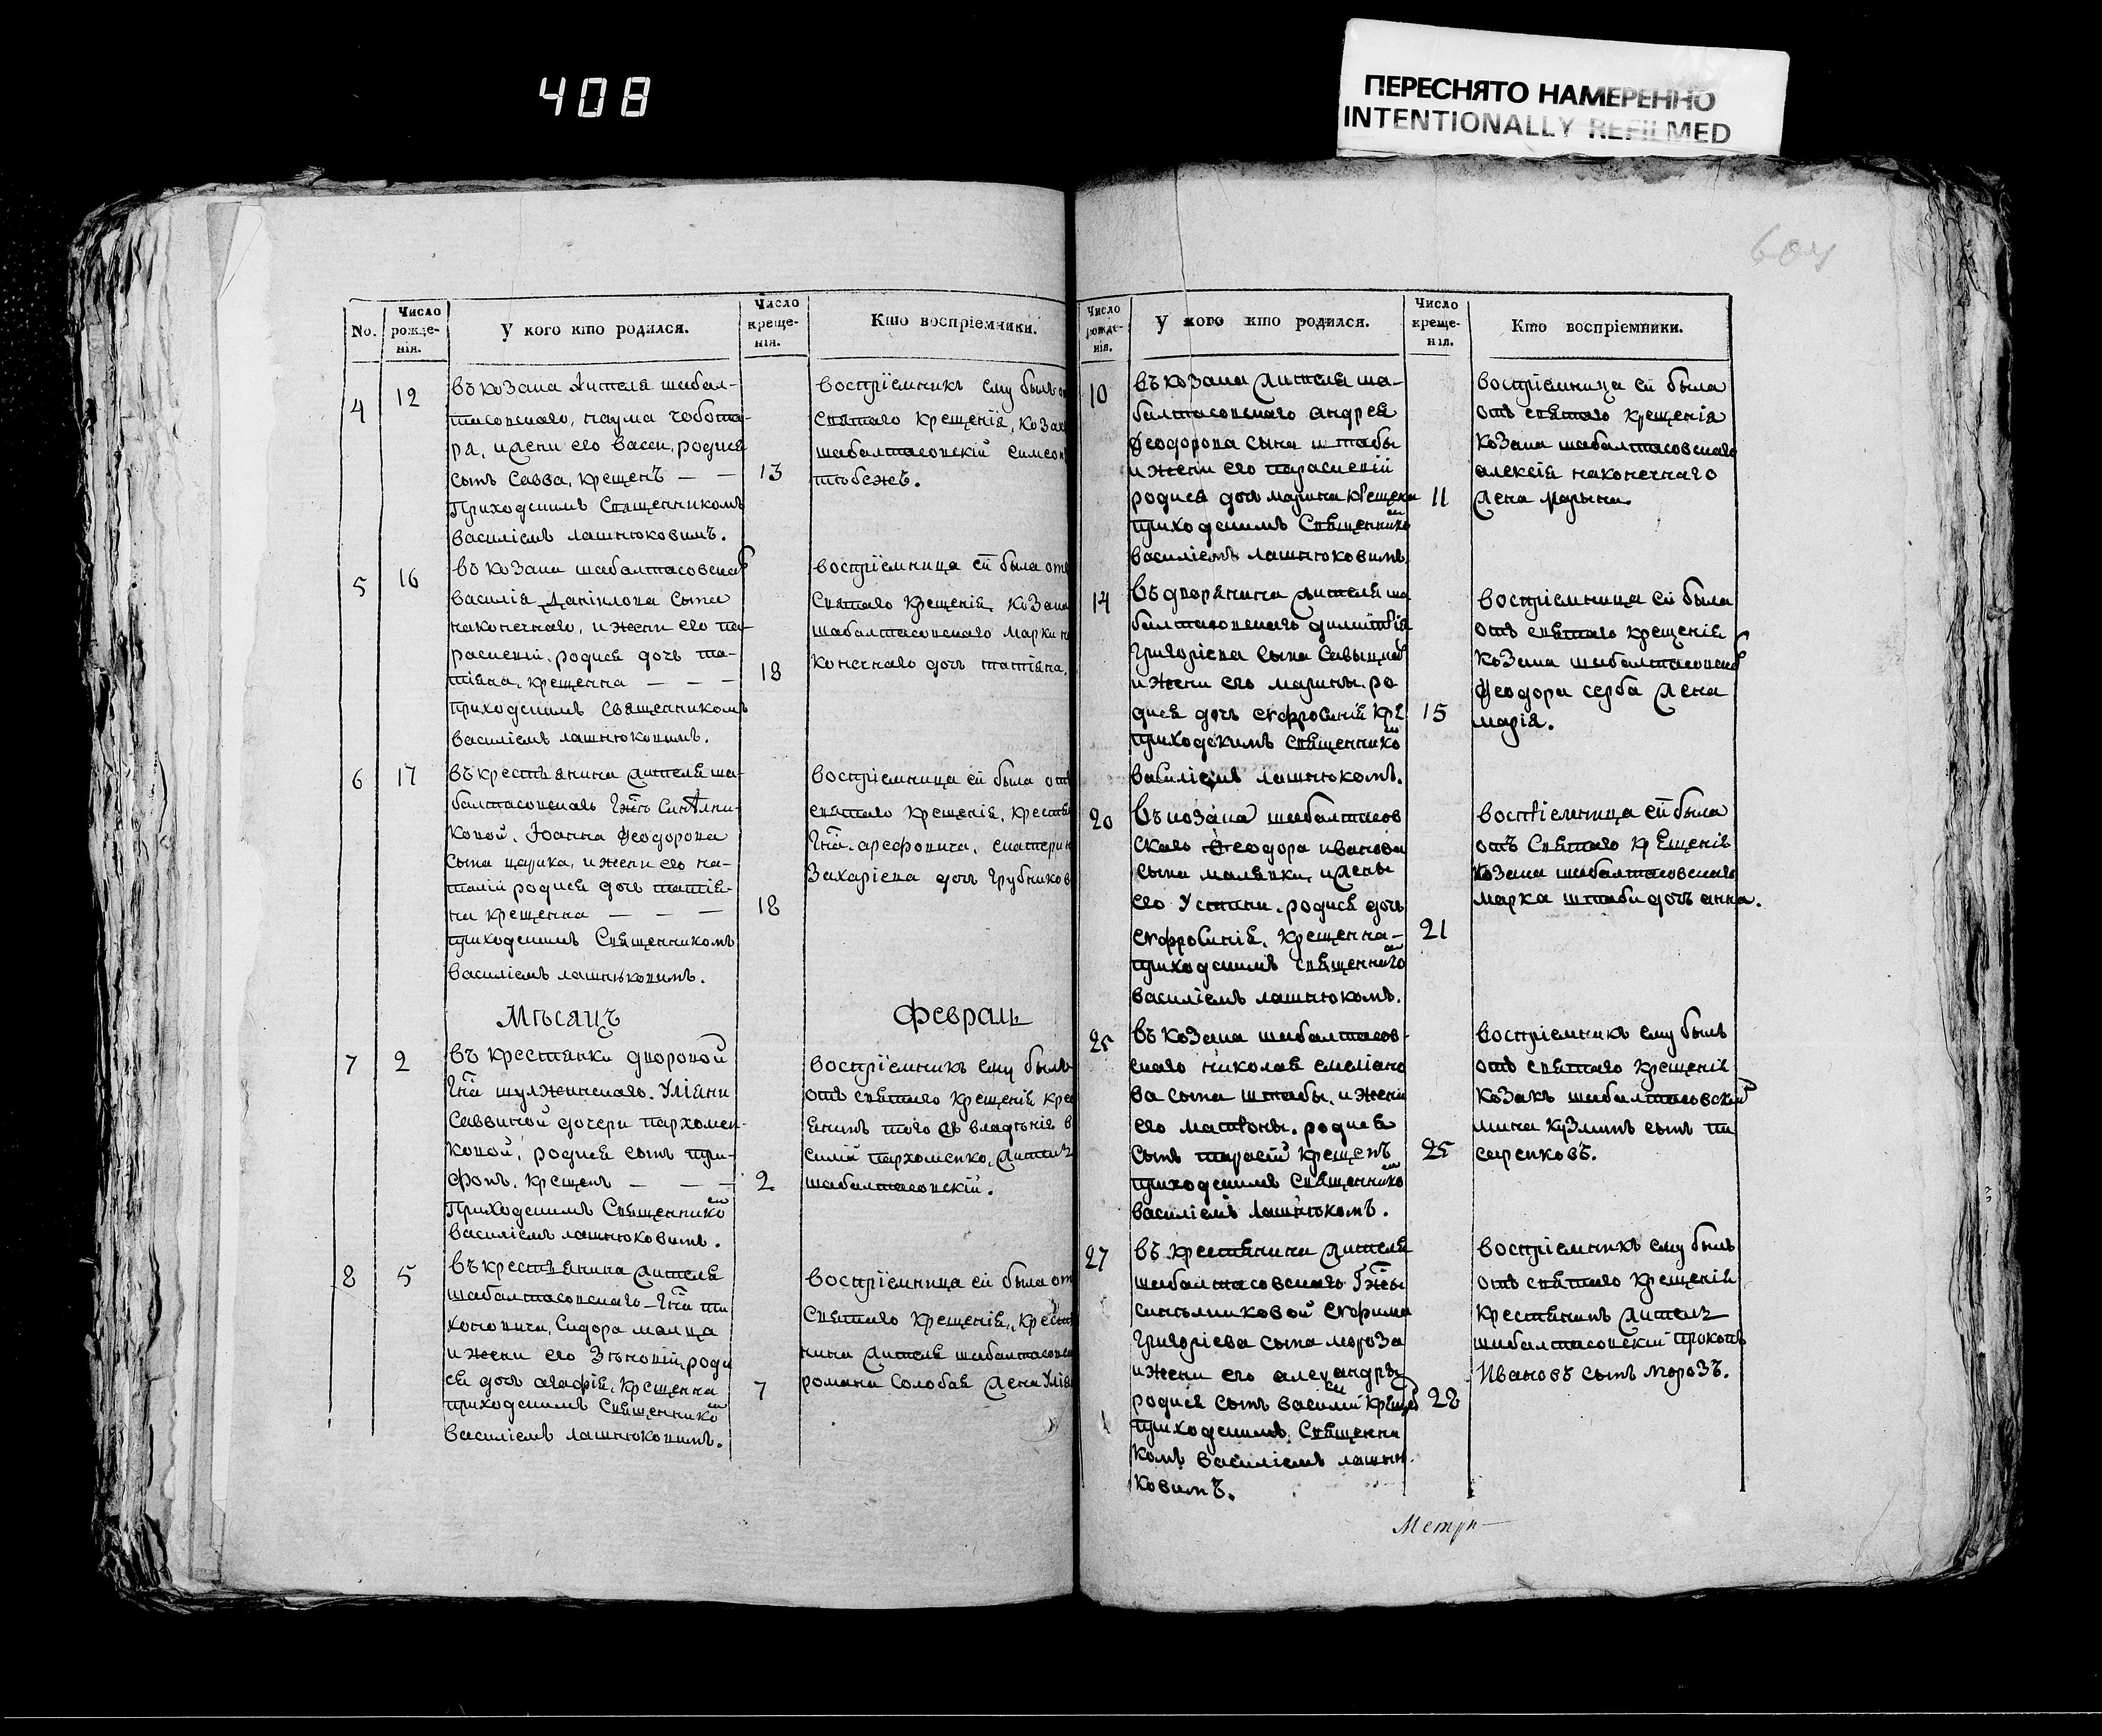 408
ПЕРЕСНЯТО НАМЕРЕННО
INTENTIONALLY REFILMED
604
No.
Число рожде-нія.
У кого кто родился.
Число креще-нія.
Кто воспріемники.
4
12
въ козака жителя шабал-
тасовскаго, наума чобота-
ря, и жени его васси, родися
сынъ Савва, крещенъ — —
приходскимъ Священникомъ
василіемъ лашнюковимъ.
13
воспріемникъ ему былъ от
святаго крещенія, козак
шабалтасовскій симеон
5
16
въ козака шабалтасовскаг
василія данілова сына
наконечнаго, и жени его па-
раскевій. родися дочъ та-
тіяна, крещенна — — —
приходскимъ священникомъ
василіемъ лашнюковимъ.
18
воспріемница ей была отъ
святаго крещенія, козака
шабалтасовскаго марка на
конечнаго дочъ татіяна.
6
17
въ крестьянина жителя ша-
балтасовскаго Гжи Синѣлни-
ковой, Іоанна Феодорова
сына царика, и жени его на-
талій родися дочъ татія-
на крещенна — — —
приходскимъ Священникомъ
василіемъ лашньковимъ.
18
воспріемница ей была отъ
святаго крещенія, крестя
Гна. арефовича, екатерин
Захаріева дочъ Грубников
Мѣсяцъ
Февраль
7
2
въ крестянки дворовой
Гна шулжинскаго. Уліяни
Саввиной дочери пархомен-
ковой, родися сынъ три-
фонъ. крещенъ — — —
Приходскимъ Священнико
василіемъ лашнюковимъ.
2
воспріемникъ ему былъ
отъ святаго крещенія кре
янинъ того жъ владѣнія ва
силій пархоменко, житель
шабалтасовскій.
8
5
въ крестьянина жителя
шабалтасовскаго Гна ти
хоновича, Сидора малца
и жени его Зѣновій, роди
ся дочъ агафія, крещенна
приходскимъ Священнико
василіемъ лашнюковимъ.
7
воспріемница ей была от
Святаго крещенія, крестя
нина жителя шабалтасовск
романа Солобая жена Улія
Число рожде-нія.
У кого кто родился.
Число креще-нія.
Кто воспріемники.
10
въ козака жителя ша-
балтасовскаго андрея
Феодорова сына штабы
и жени его параскевій
родися дочъ марина крещена
приходскимъ Священнико
василіемъ лашнюковимъ
11
воспріемница ей была
отъ святаго крещенія
козака шабалтасовскаго
алексія наконечнаго
жена марына.
14
въ дворянина жителя ша
балтасовскаго димитрія
Григоріева сына Савыцкаг
и жени его марины. ро
дися дочъ евфросинія кре
приходскимъ священнико
василіемъ лашнюкомъ.
15
воспріемница ей была
отъ святаго крещенія
козака шабалтасовскаг
Феодора серба жена
марія.
20
Въ козака шабалтасов
скаго Феодора иванова
сына малявки, и жены
его Устини. родися дочъ
евфросинія, крещенна-
приходскимъ священнико
василіемъ лашнюкомъ.
21
воспріемница ей была
отъ Святаго крещенія
козака шабалтасовскаго
марка штаби дочъ анна.
25
въ козака шабалтасов-
скаго николая емеліано
ва сына штабы. и жени
его матроны. родися
сынъ тарасій крещенъ
приходскимъ Священнико
василіемъ лашнюкомъ.
25
воспріемникъ ему былъ
отъ святаго крещенія
козакъ шабалтасовский
мина кузминъ сынъ пи
саренковъ.
27
въ крестянина жителя
шабалтасовскаго Гжы
синелниковой ефима
Григоріева сына мороза
и жени его александры
родися сынъ василій крещ
приходскимъ, Священни
комъ василіемъ лашню
ковимъ.
28
воспріемникъ ему былъ
отъ святаго крещенія
крестянинъ житель
шабалтасовскій прокопъ
Ивановъ сынъ морозъ.
Метри—